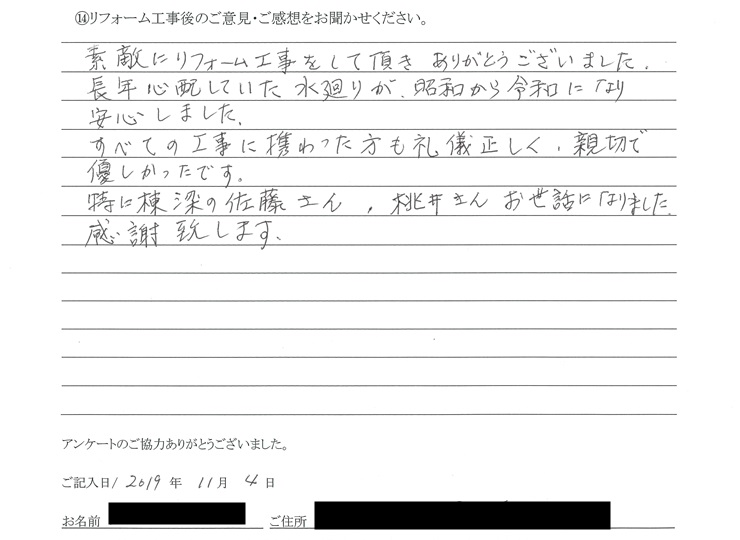 ⑭リフォーム工事後のご意見・ご感想をお聞かせください。
素敵にリフォーム工事をして頂き ありがとうございました.
長年心配していた水廻りが、昭和から令和になり
安心しました.
すべての工事に携わった方も礼儀正しく、親切で
優しかったです。
特に棟梁の佐藤さん、桃井さん お世話になりました.
感謝致します.
アンケートのご協力ありがとうございました。
ご記入日/ 2019 年 11月 4日
お名前 ご住所